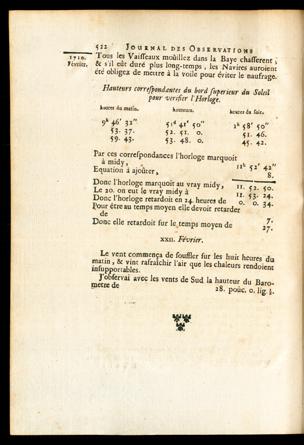 522 JOURNAL DES OBSERVATIONS
1710.
Février.
Tous les Vaisseaux moüillez dans la Baye chasserent,
& s'il eût duré plus long-temps, les Navires auroient
été obligez de mettre à la voile pour éviter le naufrage.
Hauteurs correspondantes du bord superieur du Soleil
pour verifier l'Horloge.
heures du matin. hauteurs. heures du soir.
9h 46' 32" 51d 41' 50" 2h 58' 50"
53. 37. 52. 51. 0. 51. 46.
59. 43. 53. 48. 0. 45. 42.
Par ces correspondances l'horloge marquoit
à midy, 12h 52' 42"
Equation à ajoûter, 8.
Donc l'horloge marquoit au vray midy, 12. 52. 50.
Le 20. on eut le vray midy à 12. 53. 24.
Donc l'horloge retardoit en 24. heures de 0. 0. 34.
Pour être au temps moyen elle devoit retarder
de 7.
Donc elle retardoit sur le temps moyen de 27.
XXII. Février.
Le vent commença de souffler sur les huit heures du
matin, & vint rafraîchir l'air que les chaleurs rendoient
insupportables.
J'observai avec les vents de Sud la hauteur du Baro-
metre de 28. pouc. 0. lig.